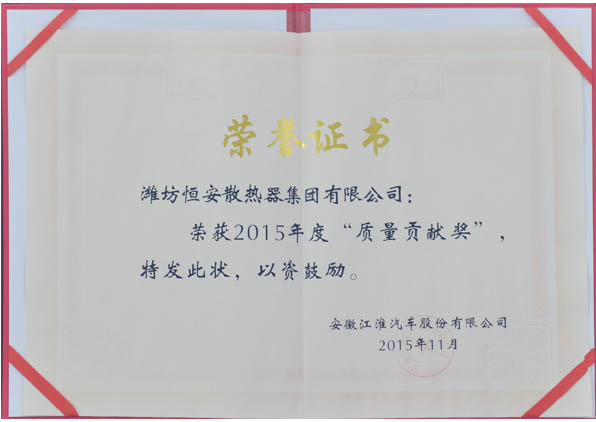 荣誉证书
潍坊恒安散热器集团有限公司：
荣获2015年度“质量贡献奖”，
特发此状，以资鼓励。
安徽江淮汽车股份有限公司
2015年11月